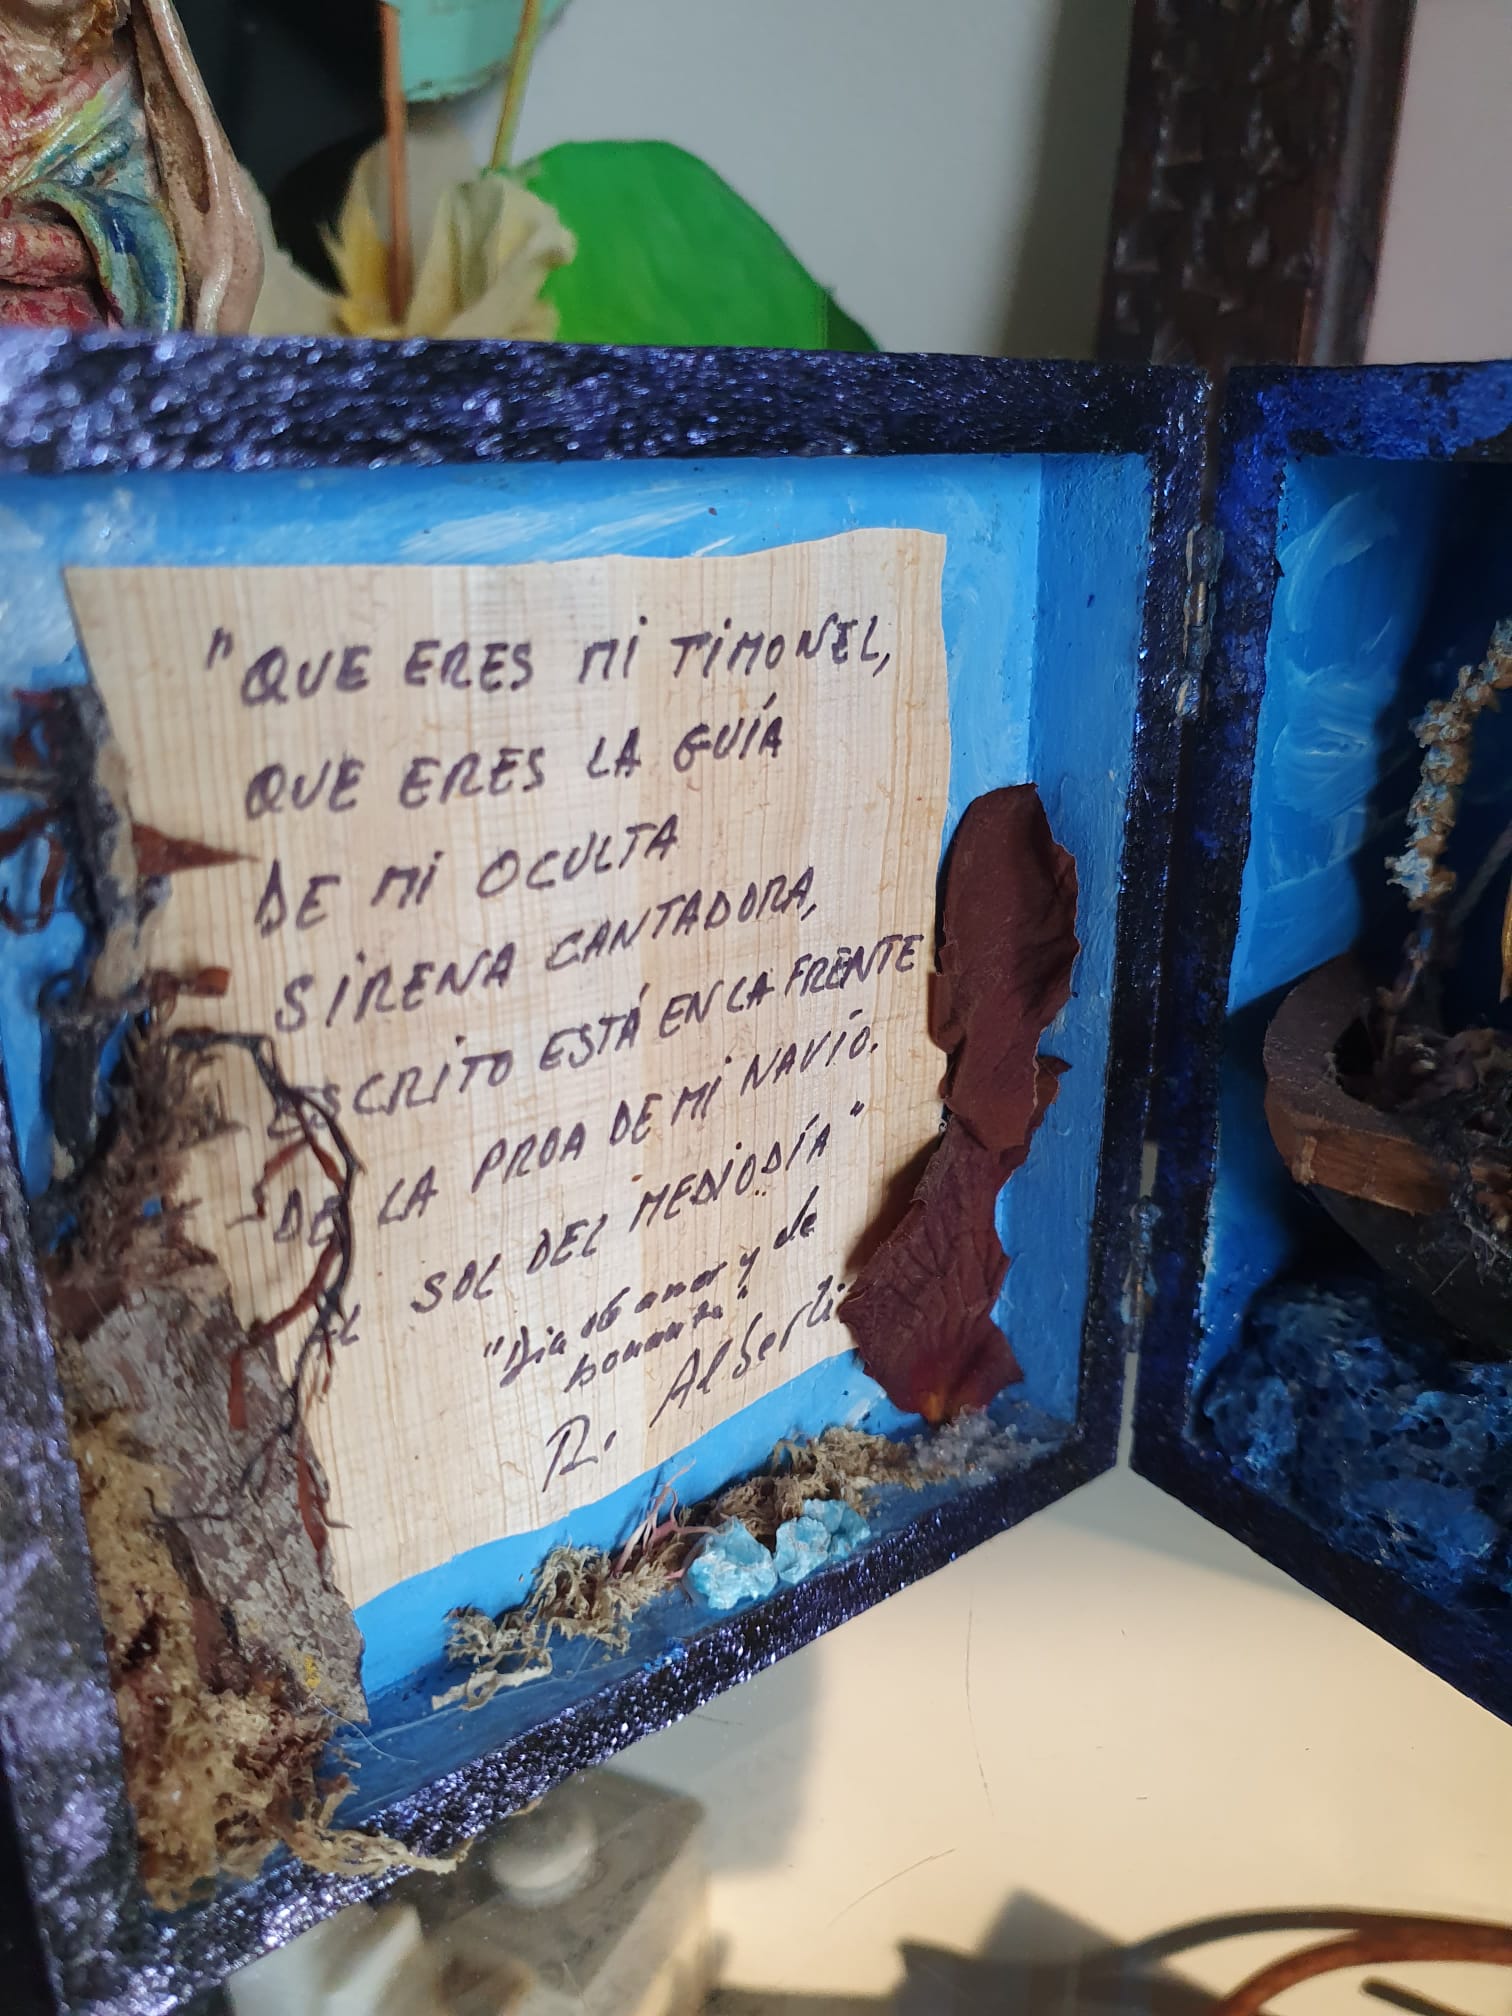 "QUE ERES MI TIMONEL,
QUE ERES LA GUÍA
DE MI OCULTA
SIRENA CANTADORA,
ESCRITO ESTÁ EN LA FRENTE
DE LA PROA DE MI NAVÍO,
AL SOL DEL MEDIODÍA"
"Dia de amor y de
bonanza"
R. Alberti